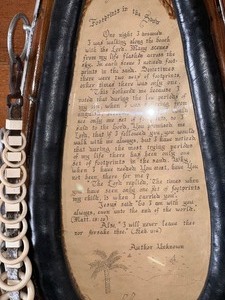 Footprints in the Sand
One night I dreamed
I was walking along the beach
with the Lord. Many scenes
from my life flashed across the
sky. In each scene I noticed foot-
prints in the sand. Sometimes
there were two sets of footprints,
other times there was only one.
This bothered me because I
noted that during the low periods of
my life, when I was suffering from
only one set of footprints, so I
said to the Lord, "You promised me
Lord, that if I followed you, you would
walk with me always, but I have noticed
that during the most trying periods
of my life there has been only one
set of footprints in the sand. Why,
when I have needed You most, have You
not been there for me?"
The Lord replied, "The times when
you have seen only one set of footprints
my child, is when I carried you."
Jesus said "Lo I am with you
always, even unto the end of the world."
(Matt.
Also "I will never leave thee
nor forsake thee."
Author Unknown